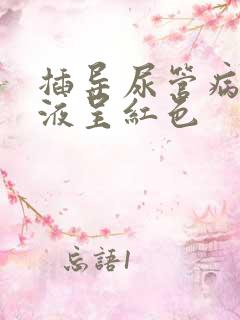 插导尿管病
液呈紅色
忘語1